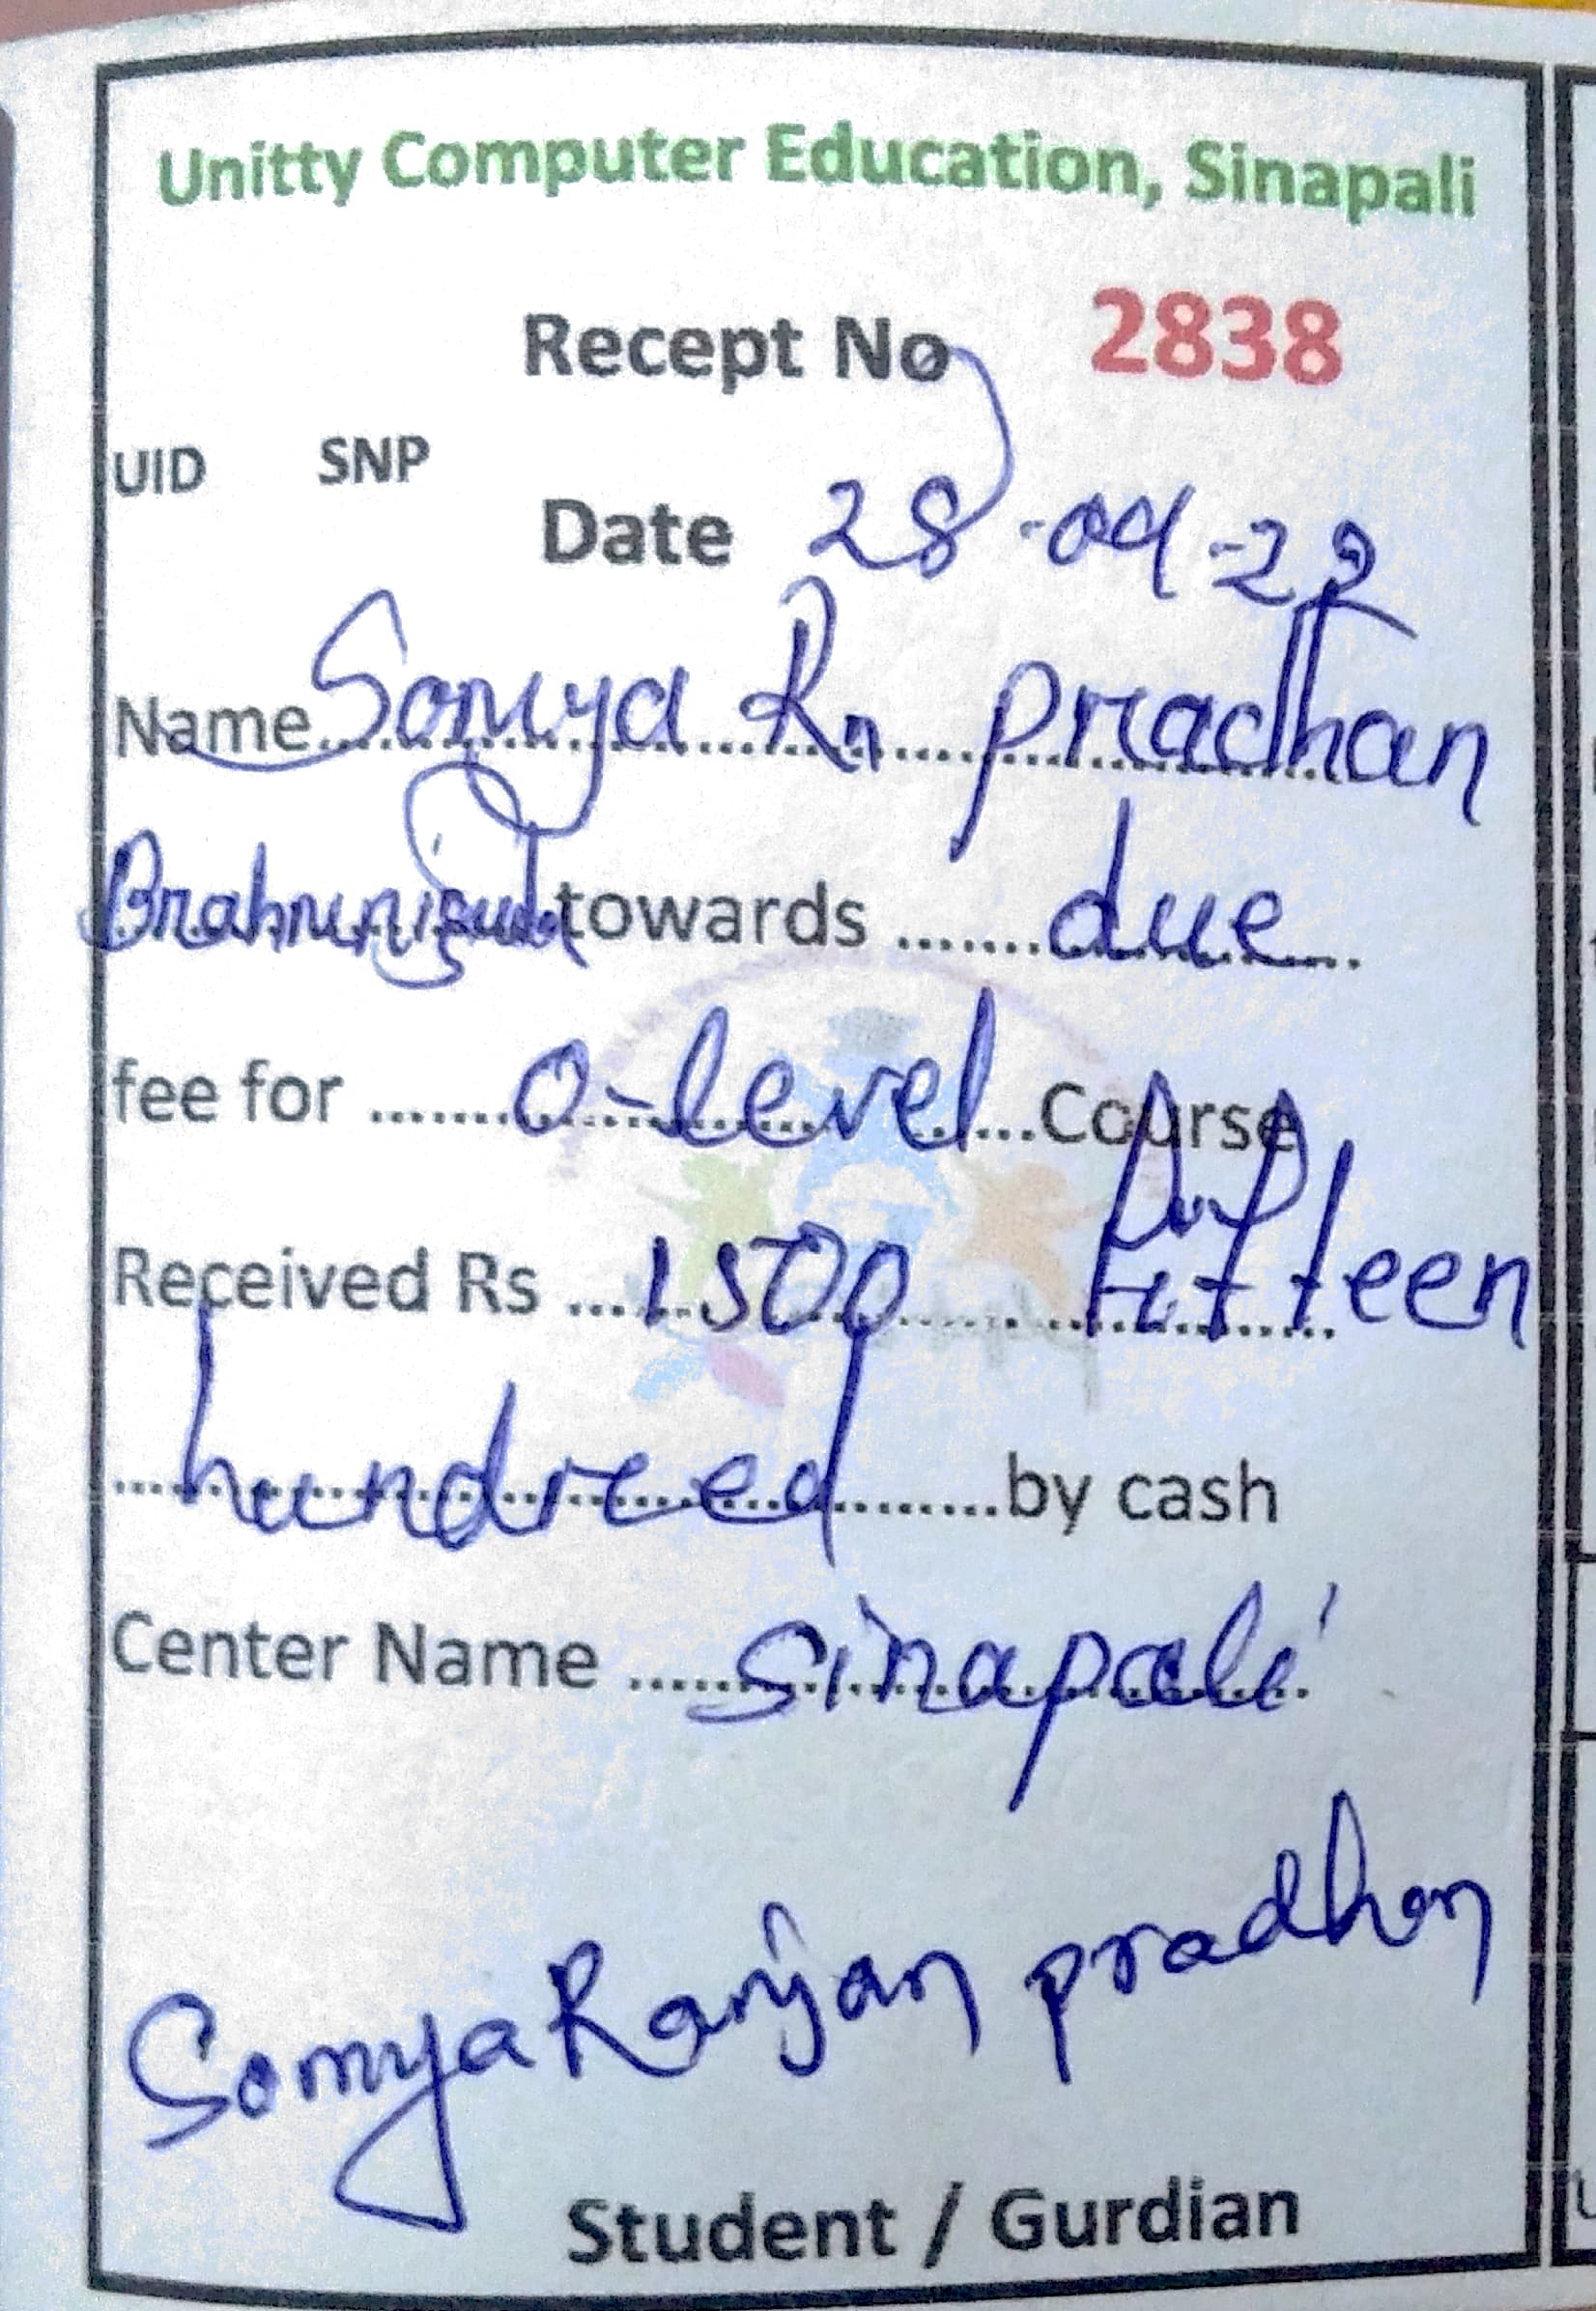 Unitty Computer Education, Sinapali
Recept No 2838
UID SNP
Date 28-04-22
Name Somya Rn pradhan
towards due
fee for O-level Course
Received Rs 1500 Fifteen
hundreed by cash
Center Name Sinapali
Somya Ranjan pradhan
Student / Gurdian